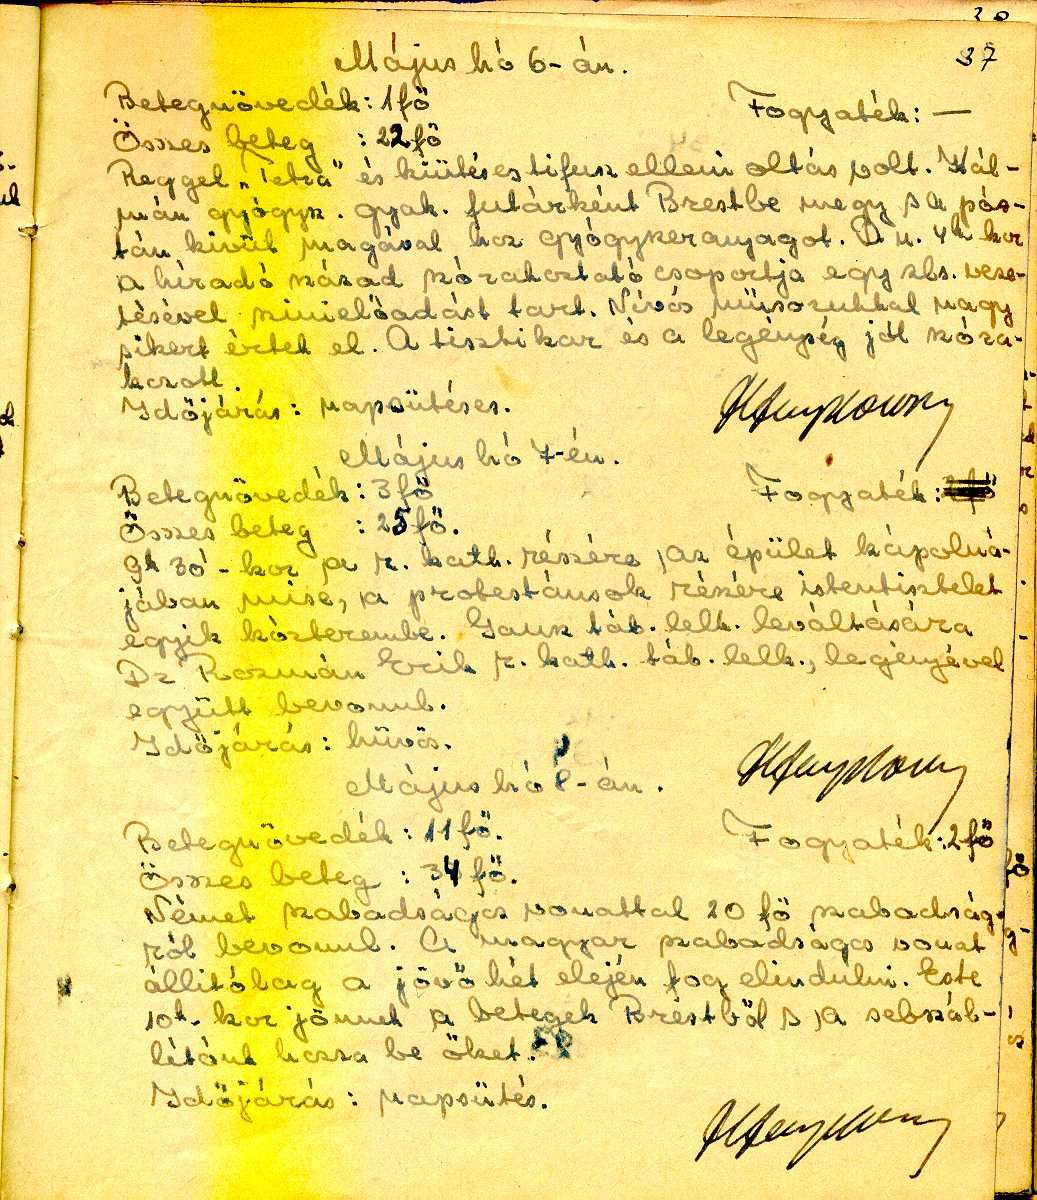 30
37
Május hó 6-án.
Betegnövedék: 1 fő Fogyaték: —
Összes beteg : 22 fő
Reggel „Tetra" és kiütéses tifusz elleni oltás volt. Kál-
mán gyógysz. gyak. futárként Brestbe megy s a pós-
tán kivül magával hoz gyógyszeranyagot. D. u. 4h kor
a híradó század szórakoztató csoportja egy zls. veze-
tésével szinielőadást tart. Nívós műsorukkal nagy
sikert értek el. A tisztikar és a legénység jól szóra-
kozott.
Időjárás: napsütéses.
Május hó 7-én.
Betegnövedék: 3 fő Fogyaték:
Összes beteg : 25 fő.
9h 30'-kor a r. kath. részére az épület kápolná-
jában mise, a protestánsok részére istentisztelet
egyik kórterembe. Gausz táb. lelk. leváltására
Dr Rozmán Erik r. kath. táb. lelk., legényével
együtt bevonul.
Időjárás: hűvös.
Május hó 8-án.
Betegnövedék: 11 fő. Fogyaték: 2 fő
Összes beteg : 34 fő.
Német szabadságos vonattal 20 fő szabadság-
ról bevonul. A magyar szabadságos vonat
állitólag a jövő hét elején fog elindulni. Este
10h-kor jönnek a betegek Brestből s a sebszál-
lítónk hozza be őket.
Időjárás: napsütés.